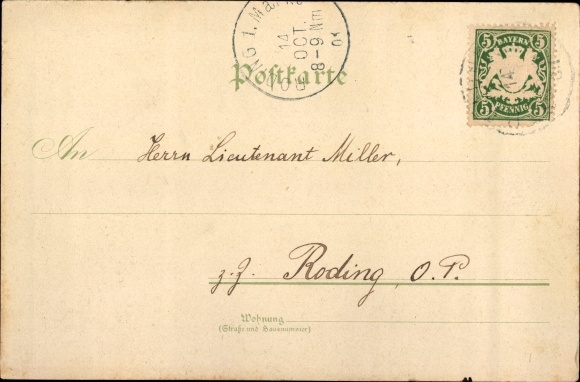 RODING 1. Mar
14
OCT.
8-9 Nm
Postkarte
5 BAYERN 5
5 PFENNIG 5
An Herrn Lieutenant Miller,
z. Z. Roding, O. P.
Wohnung
(Straße und Hausnummer)